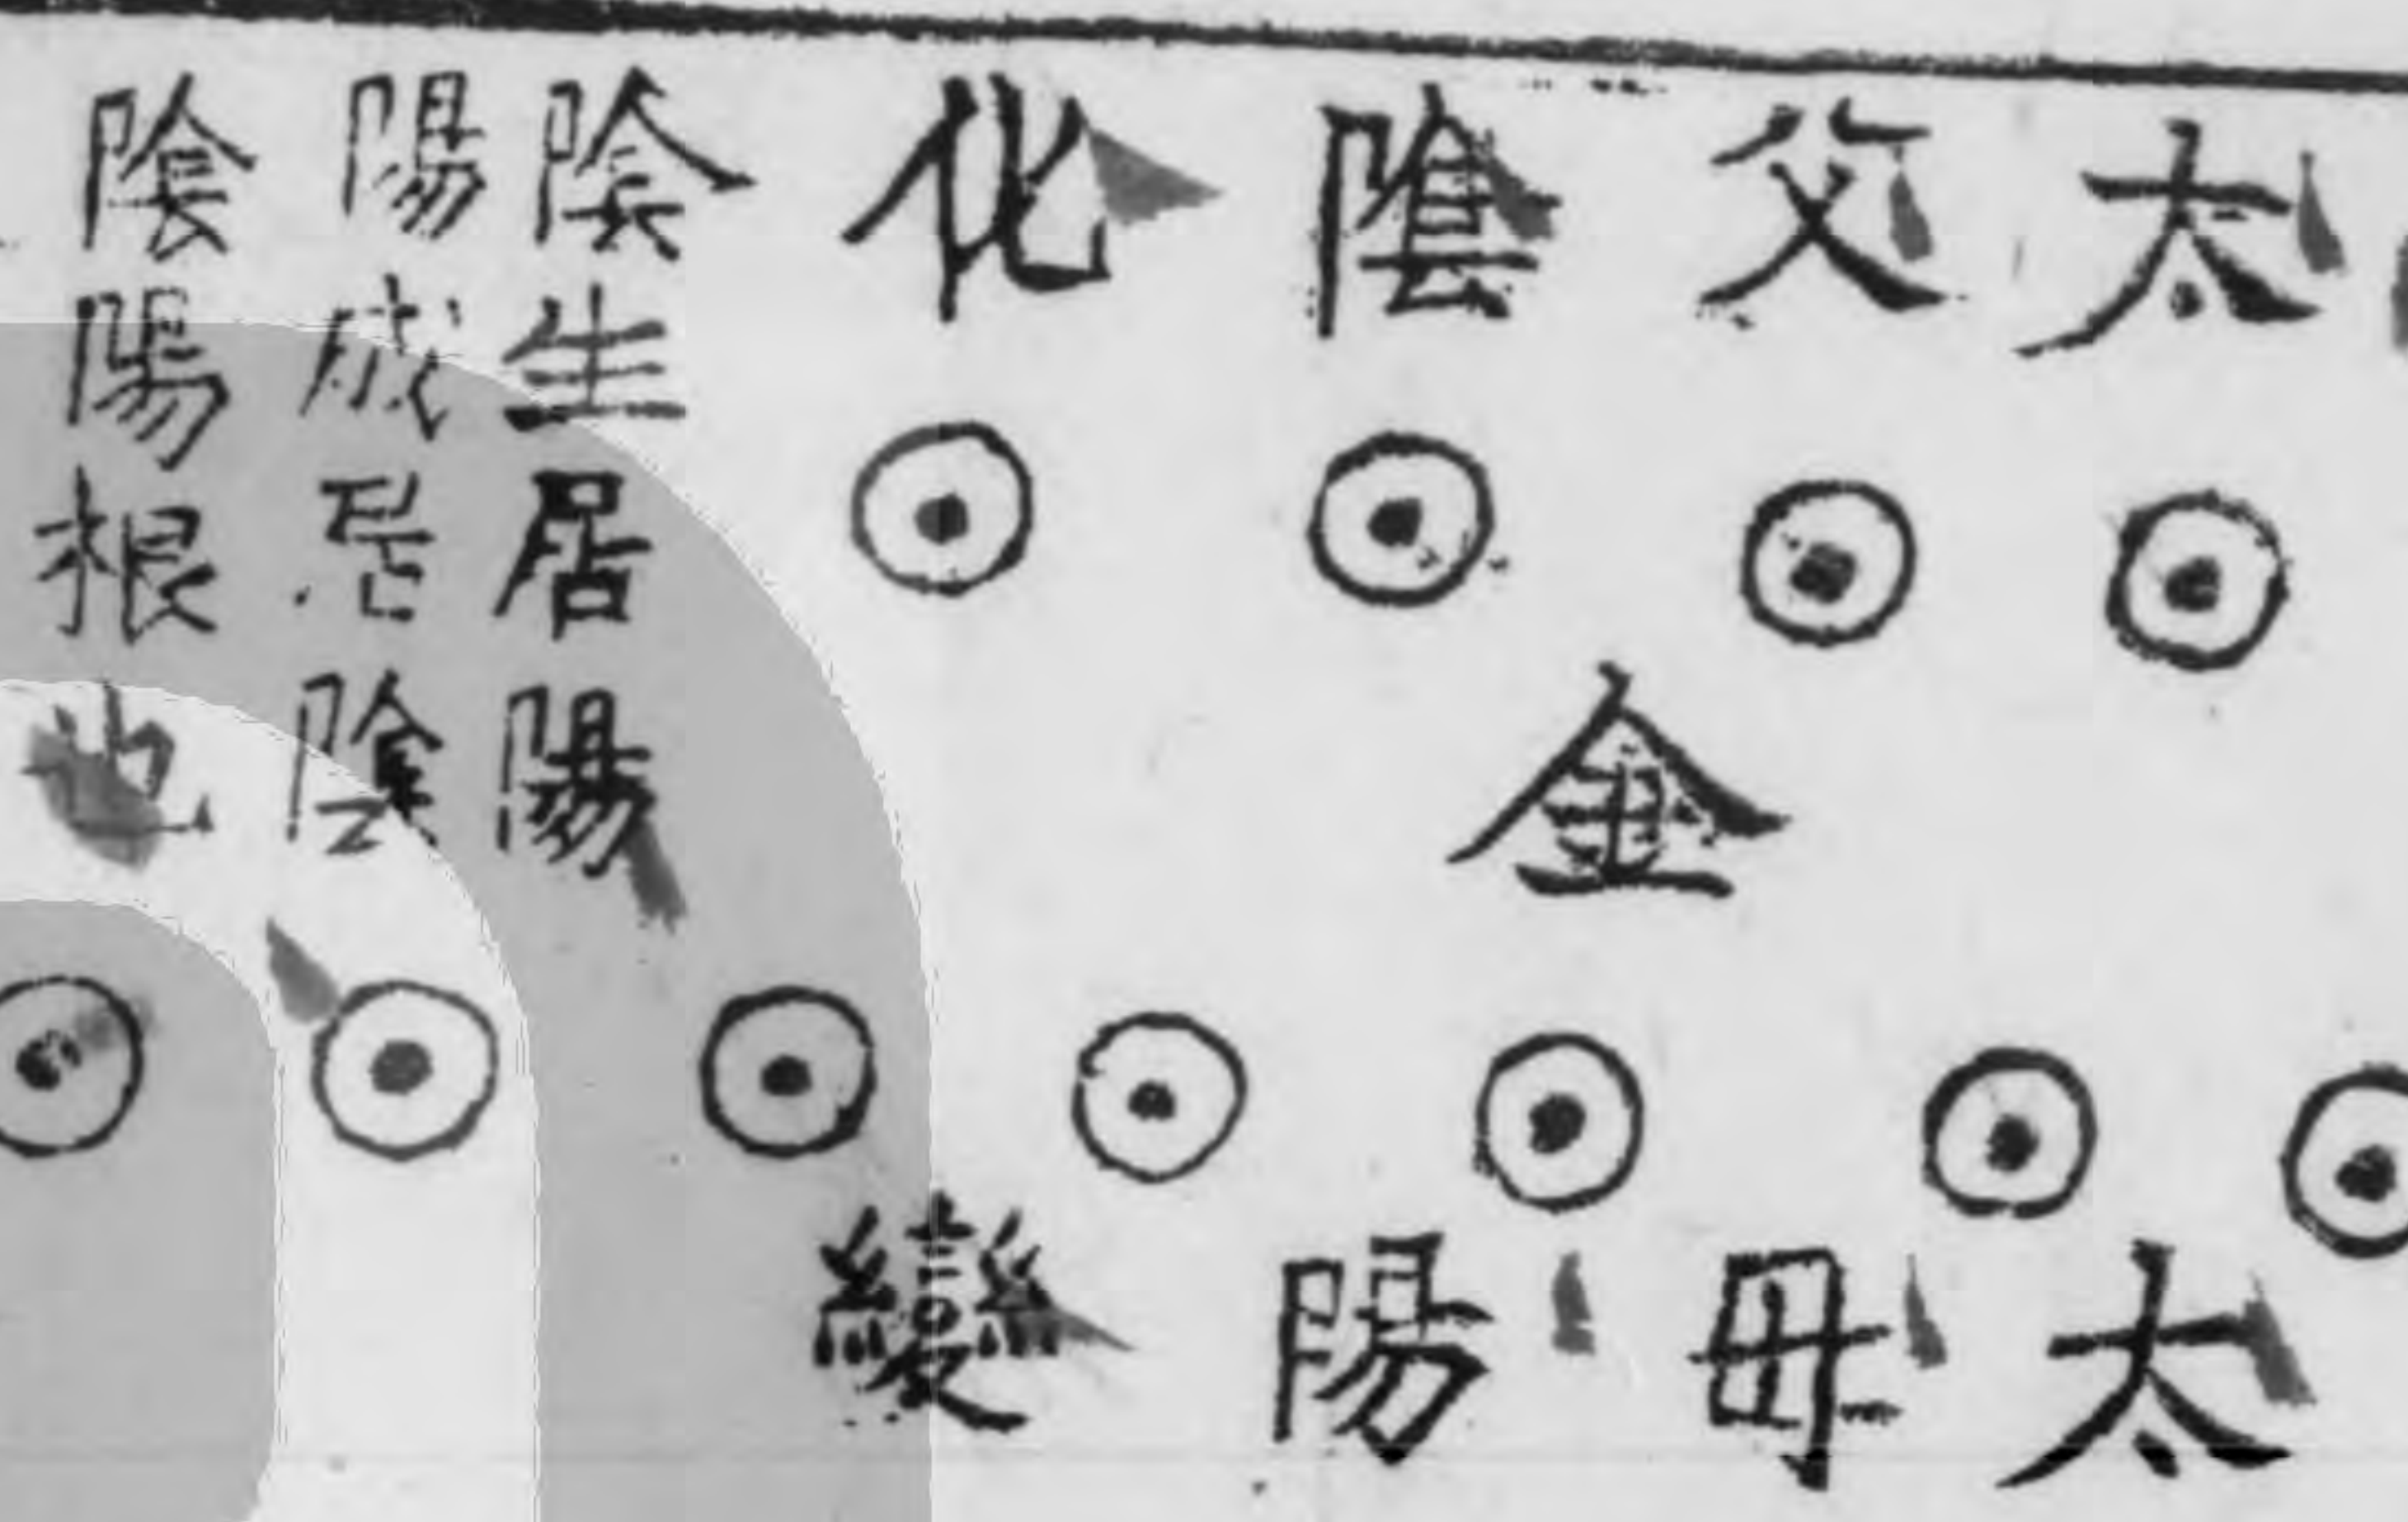 太父陰化
金
太母陽變
陰生居陽
陽成居陰
陰陽根也